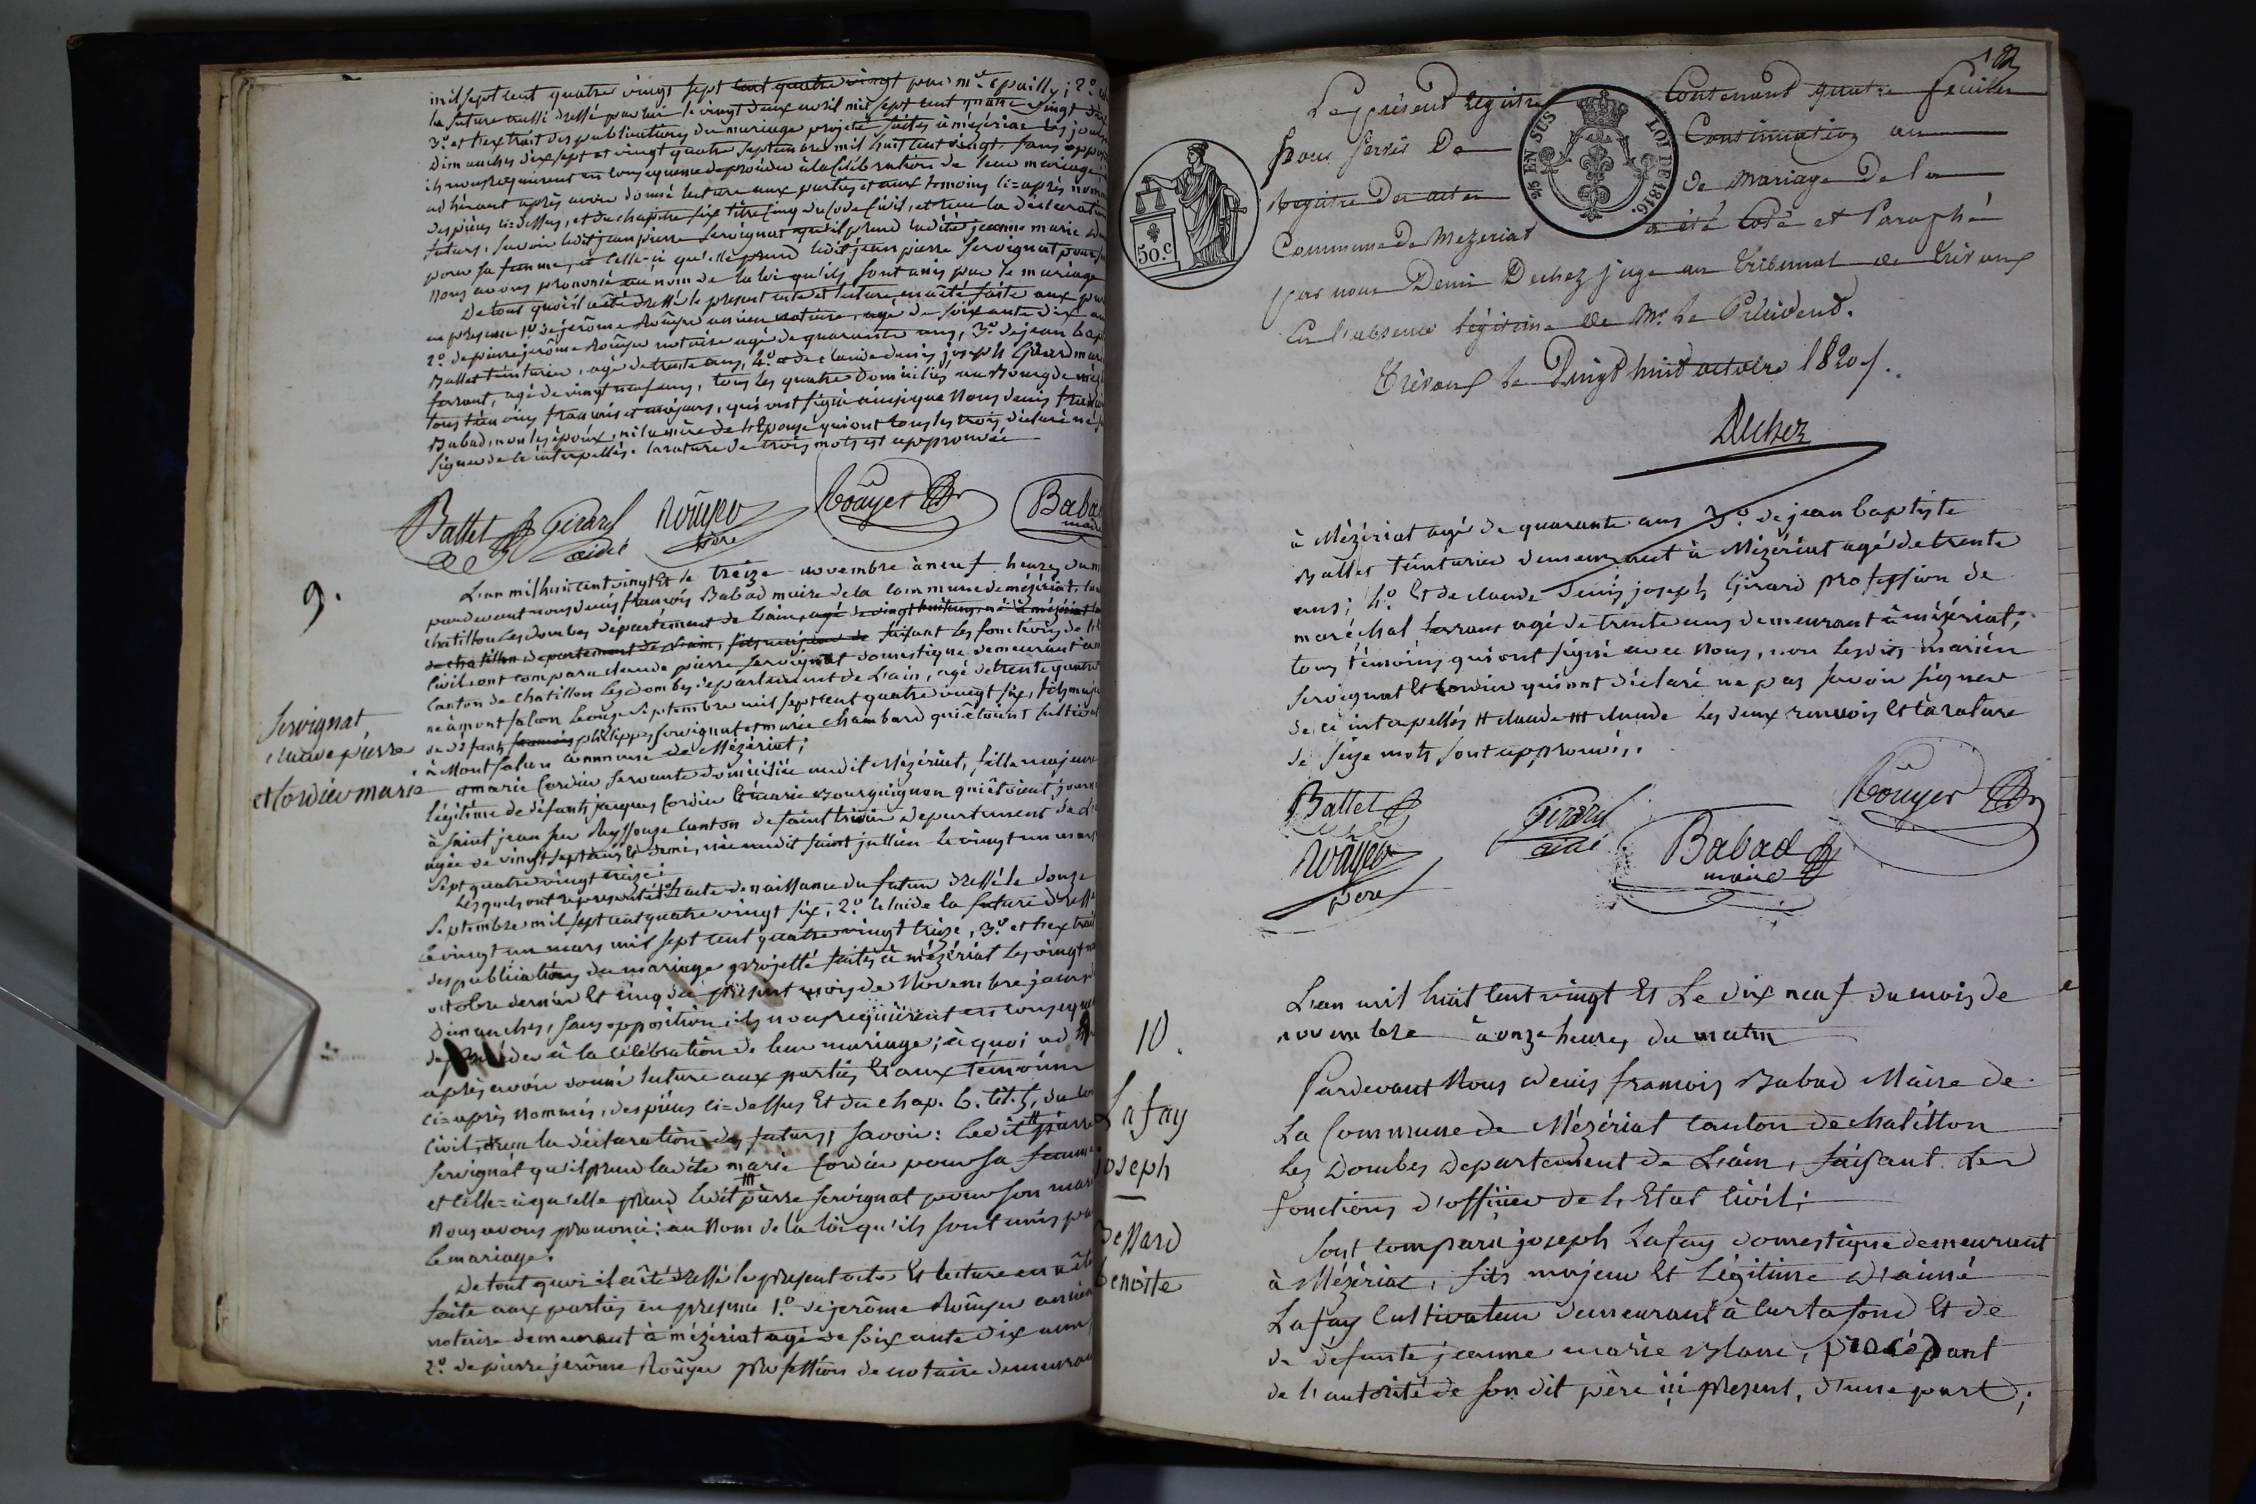 mil sept cent quatre vingt sept cent quatre vingt par me Epailly; 2.o
la future aussi dressé par lui le vingt deux avril mil sept cent quatre vingt dix
3.o et l'extrait des publications du mariage projeté faites à mézériat les jours
dimanches dix sept et vingt quatre septembre mil huit cent vingt, sans oppos
ils nous requierent en consequence de procéder à la célébration de leur mariage
adhérant après avoir donné lecture aux parties et aux temoins ci=après nommés
des pièces ci=dessus, et du chapitre six titre cinq du Code Civil, et reçu la déclaration
futurs, savoir ledit jean pierre Servignat qu'il prend ladite jeanne marie
pour sa femme, et Celle-ci qu'elle prend ledit jean pierre Servignat pour
Nous avons prononcé au nom de la loi qu'ils sont unis par le mariage
De tout quoi il a été dressé le present acte et lecture en a été faite aux par
en presence 1.o de jerôme Roüyer ancien notaire, agé de soixante dix an
2.o de pierre jerôme Roüyer notaire agé de quarante ans, 3.o de jean bapt
Ballet teinturier, agé de trente ans, 4.o et de claude denis joseph Girard mare
ferrant, agé de vingt neuf ans, tous les quatre domiciliés au Bourg de méz
tous témoins français et majeurs, qui ont signé ainsi que Nous denis fran
Babad, non les époux, ni la mère de l'Epouse qui ont tous les trois déclaré ne
signer de ce interpellés. la rature de trois mots est approuvée
Ballet Girard ainé Roüyer père Roüyer Babad maire
9.
L'an mil huit cent vingt Et le treize novembre à neuf heures du m
pardevant nous denis françois Babad maire de la commune de mézériat, can
chatillon Les dombes département de Lain, agé de vingt huit ans, né à mézériat
de chatillon département de Lain, fils majeur de faisant Les fonctions de l'
Civil, ont comparu claude pierre Servignat domestique demeurant à m
Canton de Chatillon Les dombes département de Lain, agé de trente quatre
né à mont falcon Le onze septembre mil sept cent quatre vingt six, fils maje
de défants françois philippe Servignat et marie Chambard qui étoient Cultivat
à Mont falcon commune de Mézériat;
Servignat
claude pierre
et Cordier marie
et marie Cordier servante domiciliée audit Mézériat, fille majeure
légitime de défants jacques Cordier Et marie Bourguignon qui étoient journ
à saint jean sur Reyssouze Canton de saint trivier département de
agée de vingt sept ans Et demi, née audit saint jullien le vingt un mars
sept quatre vingt treize;
Lesquels ont représenté 1.o L'acte de naissance du futur dressé le douze
septembre mil sept cent quatre vingt six, 2.o Celui de la future dressé
le vingt un mars mil sept cent quatre vingt treize, 3.o et l'extrait
des publications du mariage projetté faites à mézériat les vingt n
octobre dernier Et cinq du présent mois de Novembre jours
Dimanches, sans opposition, ils nous requièrent en conseque
de procéder à la célébration de leur mariage; à quoi ad
après avoir donné lecture aux parties Et aux témoins
ci=après nommés, des pièces ci=dessus Et du chap. 6. tit. 5, du
Civil, reçu la déclaration des futurs, savoir: Ledit # pierre
Servignat qu'il prend ladite marie Cordier pour sa femme
et Celle=ci qu'elle prend Ledit ## pierre Servignat pour son mari
Nous avons prononcé: au Nom de la loi qu'ils sont unis par
Le mariage.
De tout quoi il a été dressé le present acte Et lecture en a été
faite aux parties en presence 1.o de jerôme Roüyer ancien
notaire demeurant à mézériat agé de soixante dix ans,
2.o de pierre jerôme Roüyer profession de notaire demeuran
Le présent registre Contenant quatre feuilles
pour servir De Continuation au
Registre Des actes de mariage De la
Commune de Mezeriat a été Coté et Paraphé
par nous Denis Duchez juge au Tribunal de Trévoux
En l'absence légitime de Mr. Le Président.
Trévoux le Vingt huit octobre 1820.
Duchez
50.c
25 EN SUS
LOI DE 1816.
à Mézériat agé de quarante ans 3.o de jean baptiste
Ballet teinturier demeurant à Mézériat agé de trente
ans; 4.o Et de claude denis joseph Girard profession de
maréchal ferrant agé de trente ans demeurant à mézériat;
tous témoins qui ont signé avec Nous, non Lesdits mariés
Servignat Et Cordier qui ont déclaré ne pas savoir signer
de ce interpellés # claude ## claude Les deux renvois Et la rature
de seize mots sont approuvés.
Ballet Girard ainé Roüyer
Roüyer père Babad maire
10.
Lafay
joseph
Bessard
benoite
L'an mil huit cent vingt Et Le dix neuf du mois de
novembre à onze heures du matin
Pardevant Nous denis françois Babad Maire de
La Commune de Mézériat Canton de chatillon
Les Dombes departement de Lain, faisant Les
fonctions d'officier de L'Etat Civil;
Sont comparu joseph Lafay domestique demeurant
à Mézériat, fils majeur Et Légitime d'aimé
Lafay Cultivateur demeurant à Curtafond Et de
de défunte jeanne marie Blanc, procédant
de l'autorité de son dit père ici present, d'une part;